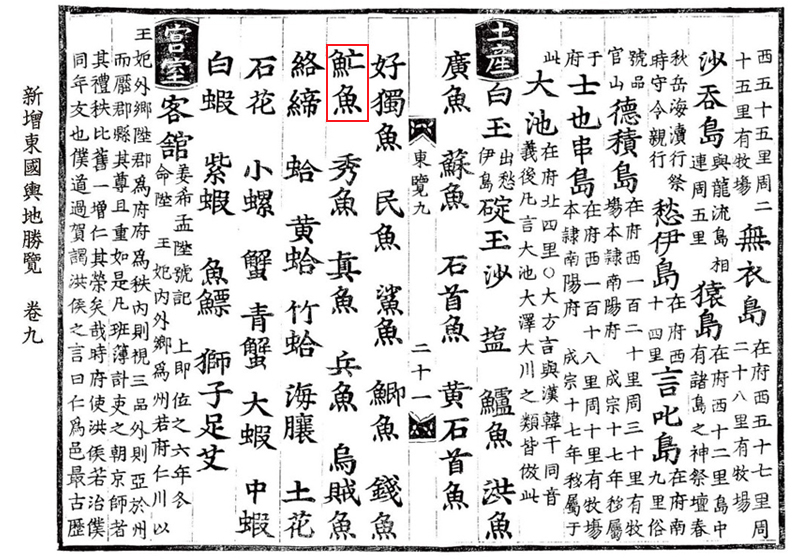 西五十五里周二
十五里有牧場
無衣島
在府西五十七里周
二十八里有牧場
沙呑島
與龍流島相
連周五里
猿島
在府西十二里島中
有諸島之神祭壇春
秋岳海瀆行祭
時守令親行
愁伊島
在府西
十四里
言叱島
在府南
九里俗
號品
官山
德積島
在府西一百二十里周三十里有牧
場本隸南陽府 成宗十七年移屬
于
府
士也串島
在府西一百十八里周十里有牧場
本隸南陽府 成宗十七年移屬于
此
大池
在府北四里○大方言與漢韓干同音
義後凡言大池大澤大川之類皆倣此
土産
白玉
出愁
伊島
碇玉沙 塩 鱸魚 洪魚
廣魚 蘇魚 石首魚 黄石首魚
東覽九 二十一
好獨魚 民魚 鯊魚 鯽魚 錢魚
䰶魚 秀魚 眞魚 兵魚 烏賊魚
絡締 蛤 黄蛤 竹蛤 海䑋 土花
石花 小螺 蟹 青蟹 大蝦 中蝦
白蝦 紫蝦 魚鰾 獅子足艾
宮室
客舘
姜希孟陞號記 上即位之六年冬
命陞 王妃内外郷爲州若府仁川以
王妃外郷陞郡爲府府爲秩内則視三品外則亞於州
而壓郡縣其尊且重如是凡班簿計吏之朝京師者
其禮秩比舊一增仁其榮矣哉時府使洪侯若治僕
同年友也僕道過賀謁洪侯之言曰仁爲邑最古歷
新增東國輿地勝覽 卷九